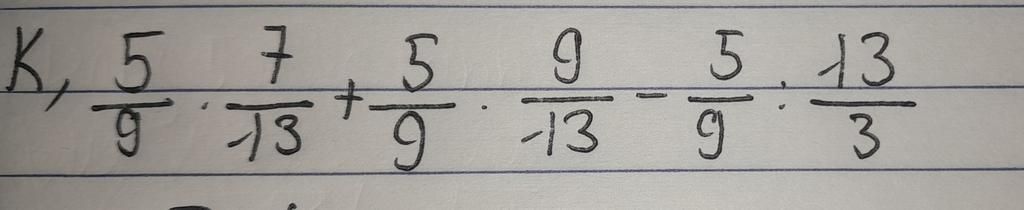 K, 5/9 . 7/13 + 5/9 . 9/13 - 5/9 : 13/3